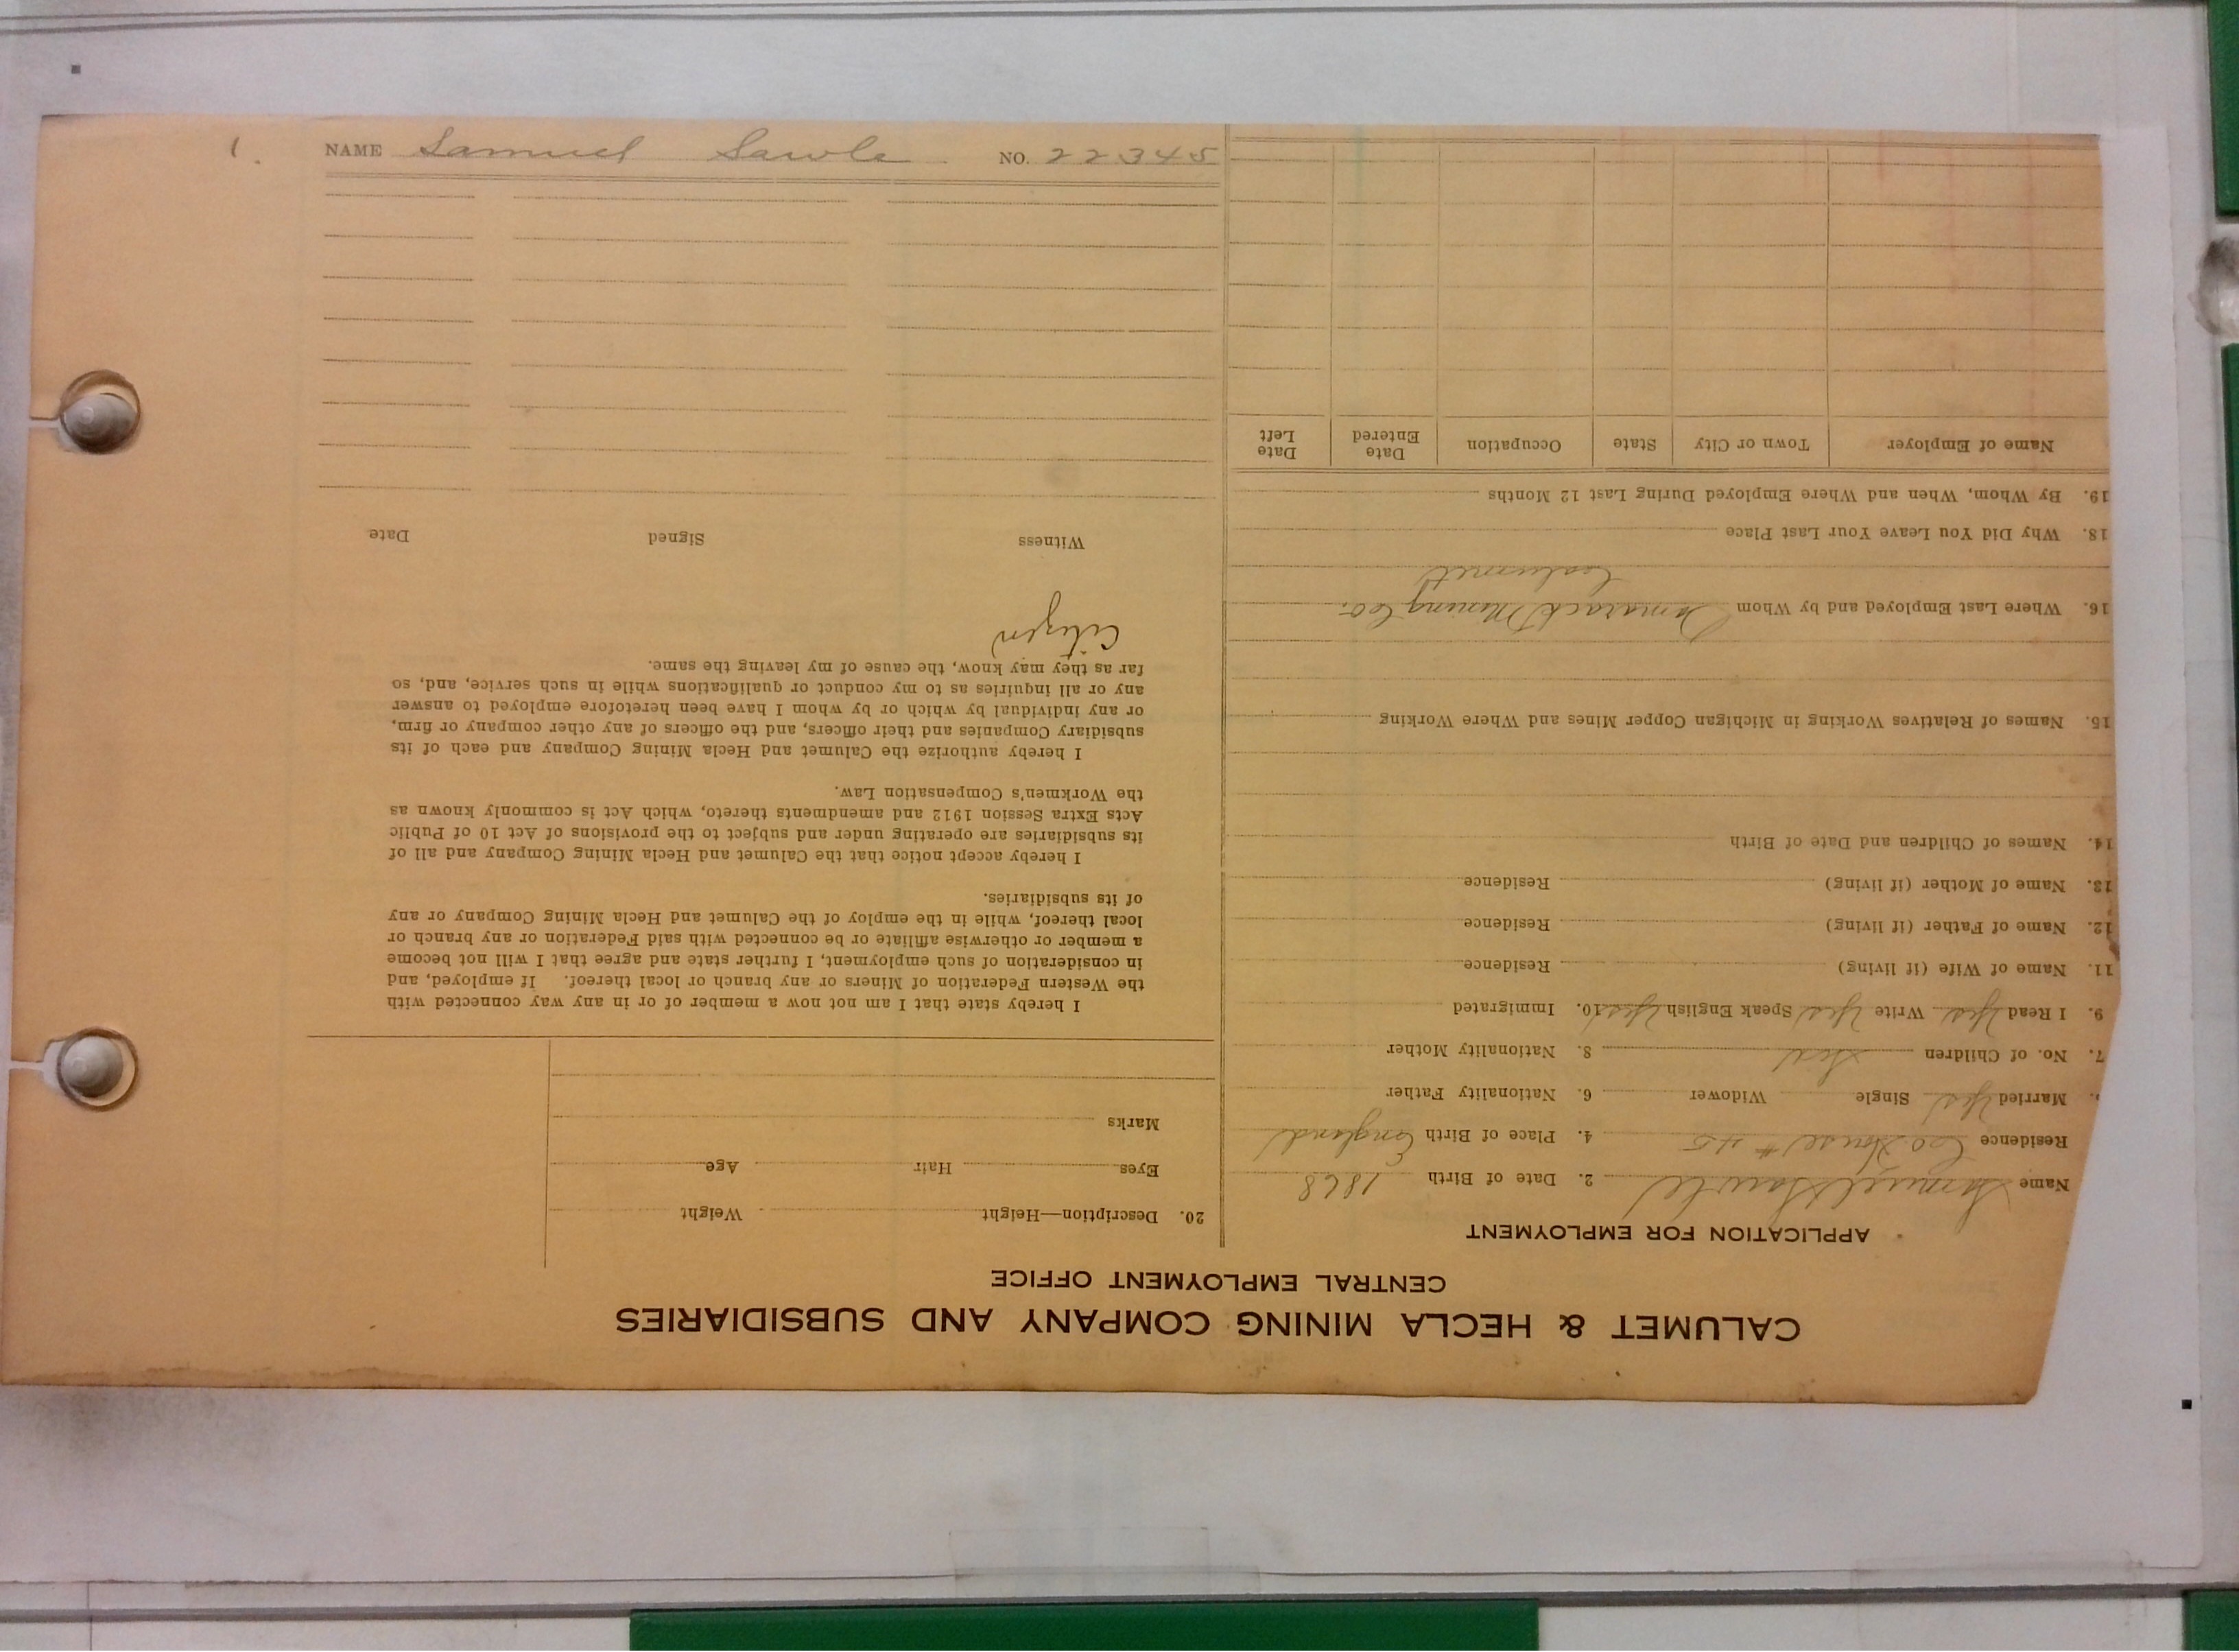 NAME Samuel Sawle NO. 22345
1.
CALUMET & HECLA MINING COMPANY AND SUBSIDIARIES
CENTRAL EMPLOYMENT OFFICE
APPLICATION FOR EMPLOYMENT
Name Samuel Sawle 2. Date of Birth 1868
Residence Co House # 45 4. Place of Birth England
Married Yes Single Widower 6. Nationality Father
7. No. of Children 8. Nationality Mother
9. I Read Yes Write Yes Speak English Yes 10. Immigrated
11. Name of Wife (if living) Residence
12. Name of Father (if living) Residence
13. Name of Mother (if living) Residence
14. Names of Children and Date of Birth
15. Names of Relatives Working in Michigan Copper Mines and Where Working
16. Where Last Employed and by Whom Tamarack Mining Co.
Calumet
18. Why Did You Leave Your Last Place
19. By Whom, When and Where Employed During Last 12 Months
Name of Employer Town or City State Occupation Date Entered Date Left
20. Description—Height Weight
Eyes Hair Age
Marks
I hereby state that I am not now a member of or in any way connected with
the Western Federation of Miners or any branch or local thereof. If employed, and
in consideration of such employment, I further state and agree that I will not become
a member or otherwise affiliate or be connected with said Federation or any branch or
local thereof, while in the employ of the Calumet and Hecla Mining Company or any
of its subsidiaries.
I hereby accept notice that the Calumet and Hecla Mining Company and all of
its subsidiaries are operating under and subject to the provisions of Act 10 of Public
Acts Extra Session 1912 and amendments thereto, which Act is commonly known as
the Workmen's Compensation Law.
I hereby authorize the Calumet and Hecla Mining Company and each of its
subsidiary Companies and their officers, and the officers of any other company or firm,
or any individual by which or by whom I have been heretofore employed to answer
any or all inquiries as to my conduct or qualifications while in such service, and, so
far as they may know, the cause of my leaving the same.
Citizen
Witness Signed Date